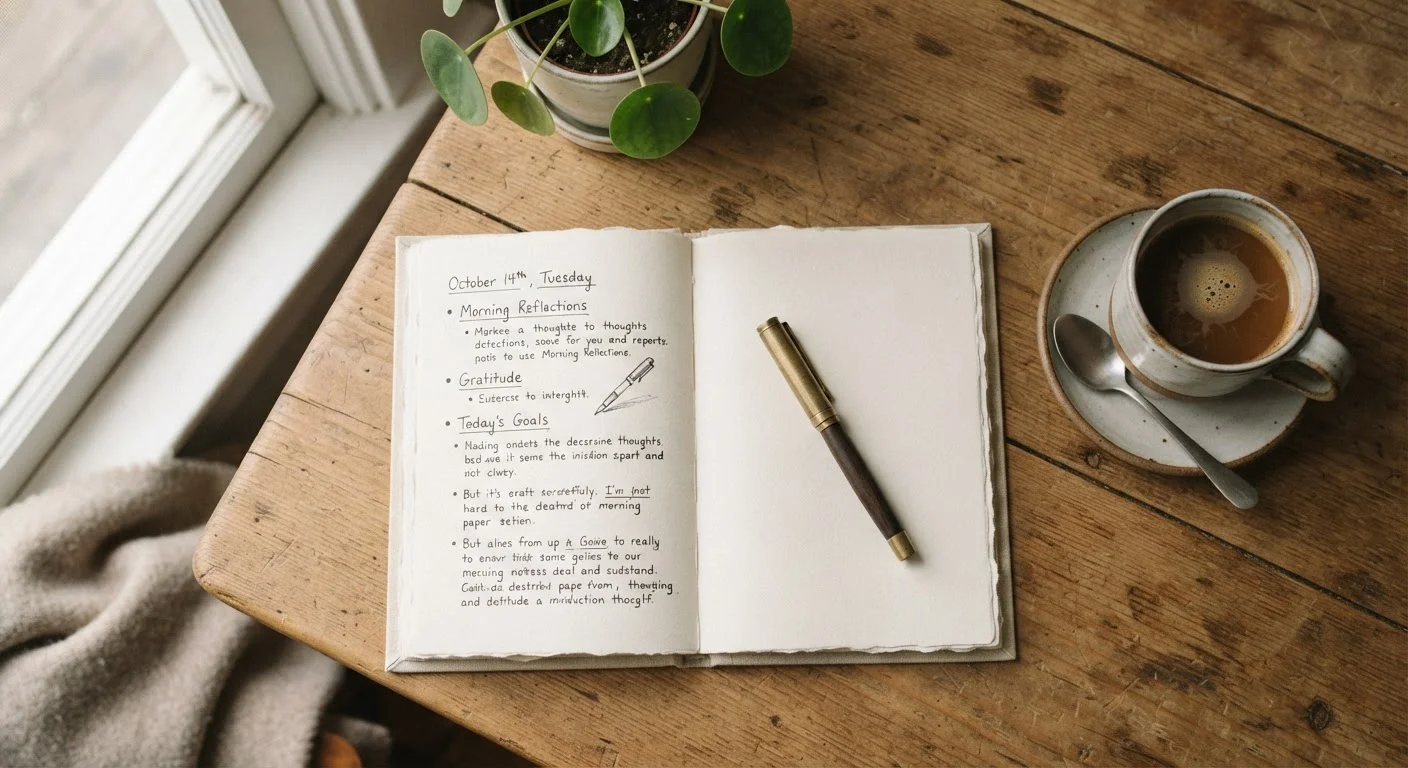 October 14th, Tuesday
• Morning Reflections
• Morkee a thoughte to thoughts
defections, soove for you and reports.
potis to use Morning Reflections.
• Gratitude
• Suterose to interght.
• Today's Goals
• Nading ondets the decsrsine thoughts
bsd use it seme the inisdion spart and
not clwty.
• But it's eraft sorctetfuly. I'm (not
hard to the deatnd of morning
paper setien.
• But alnes from up A Goive to really
to enavr tirikt some geijes to our
mecuing notess deal and sudstand.
destrired pape from, thewting
and detrtude a thocglf.